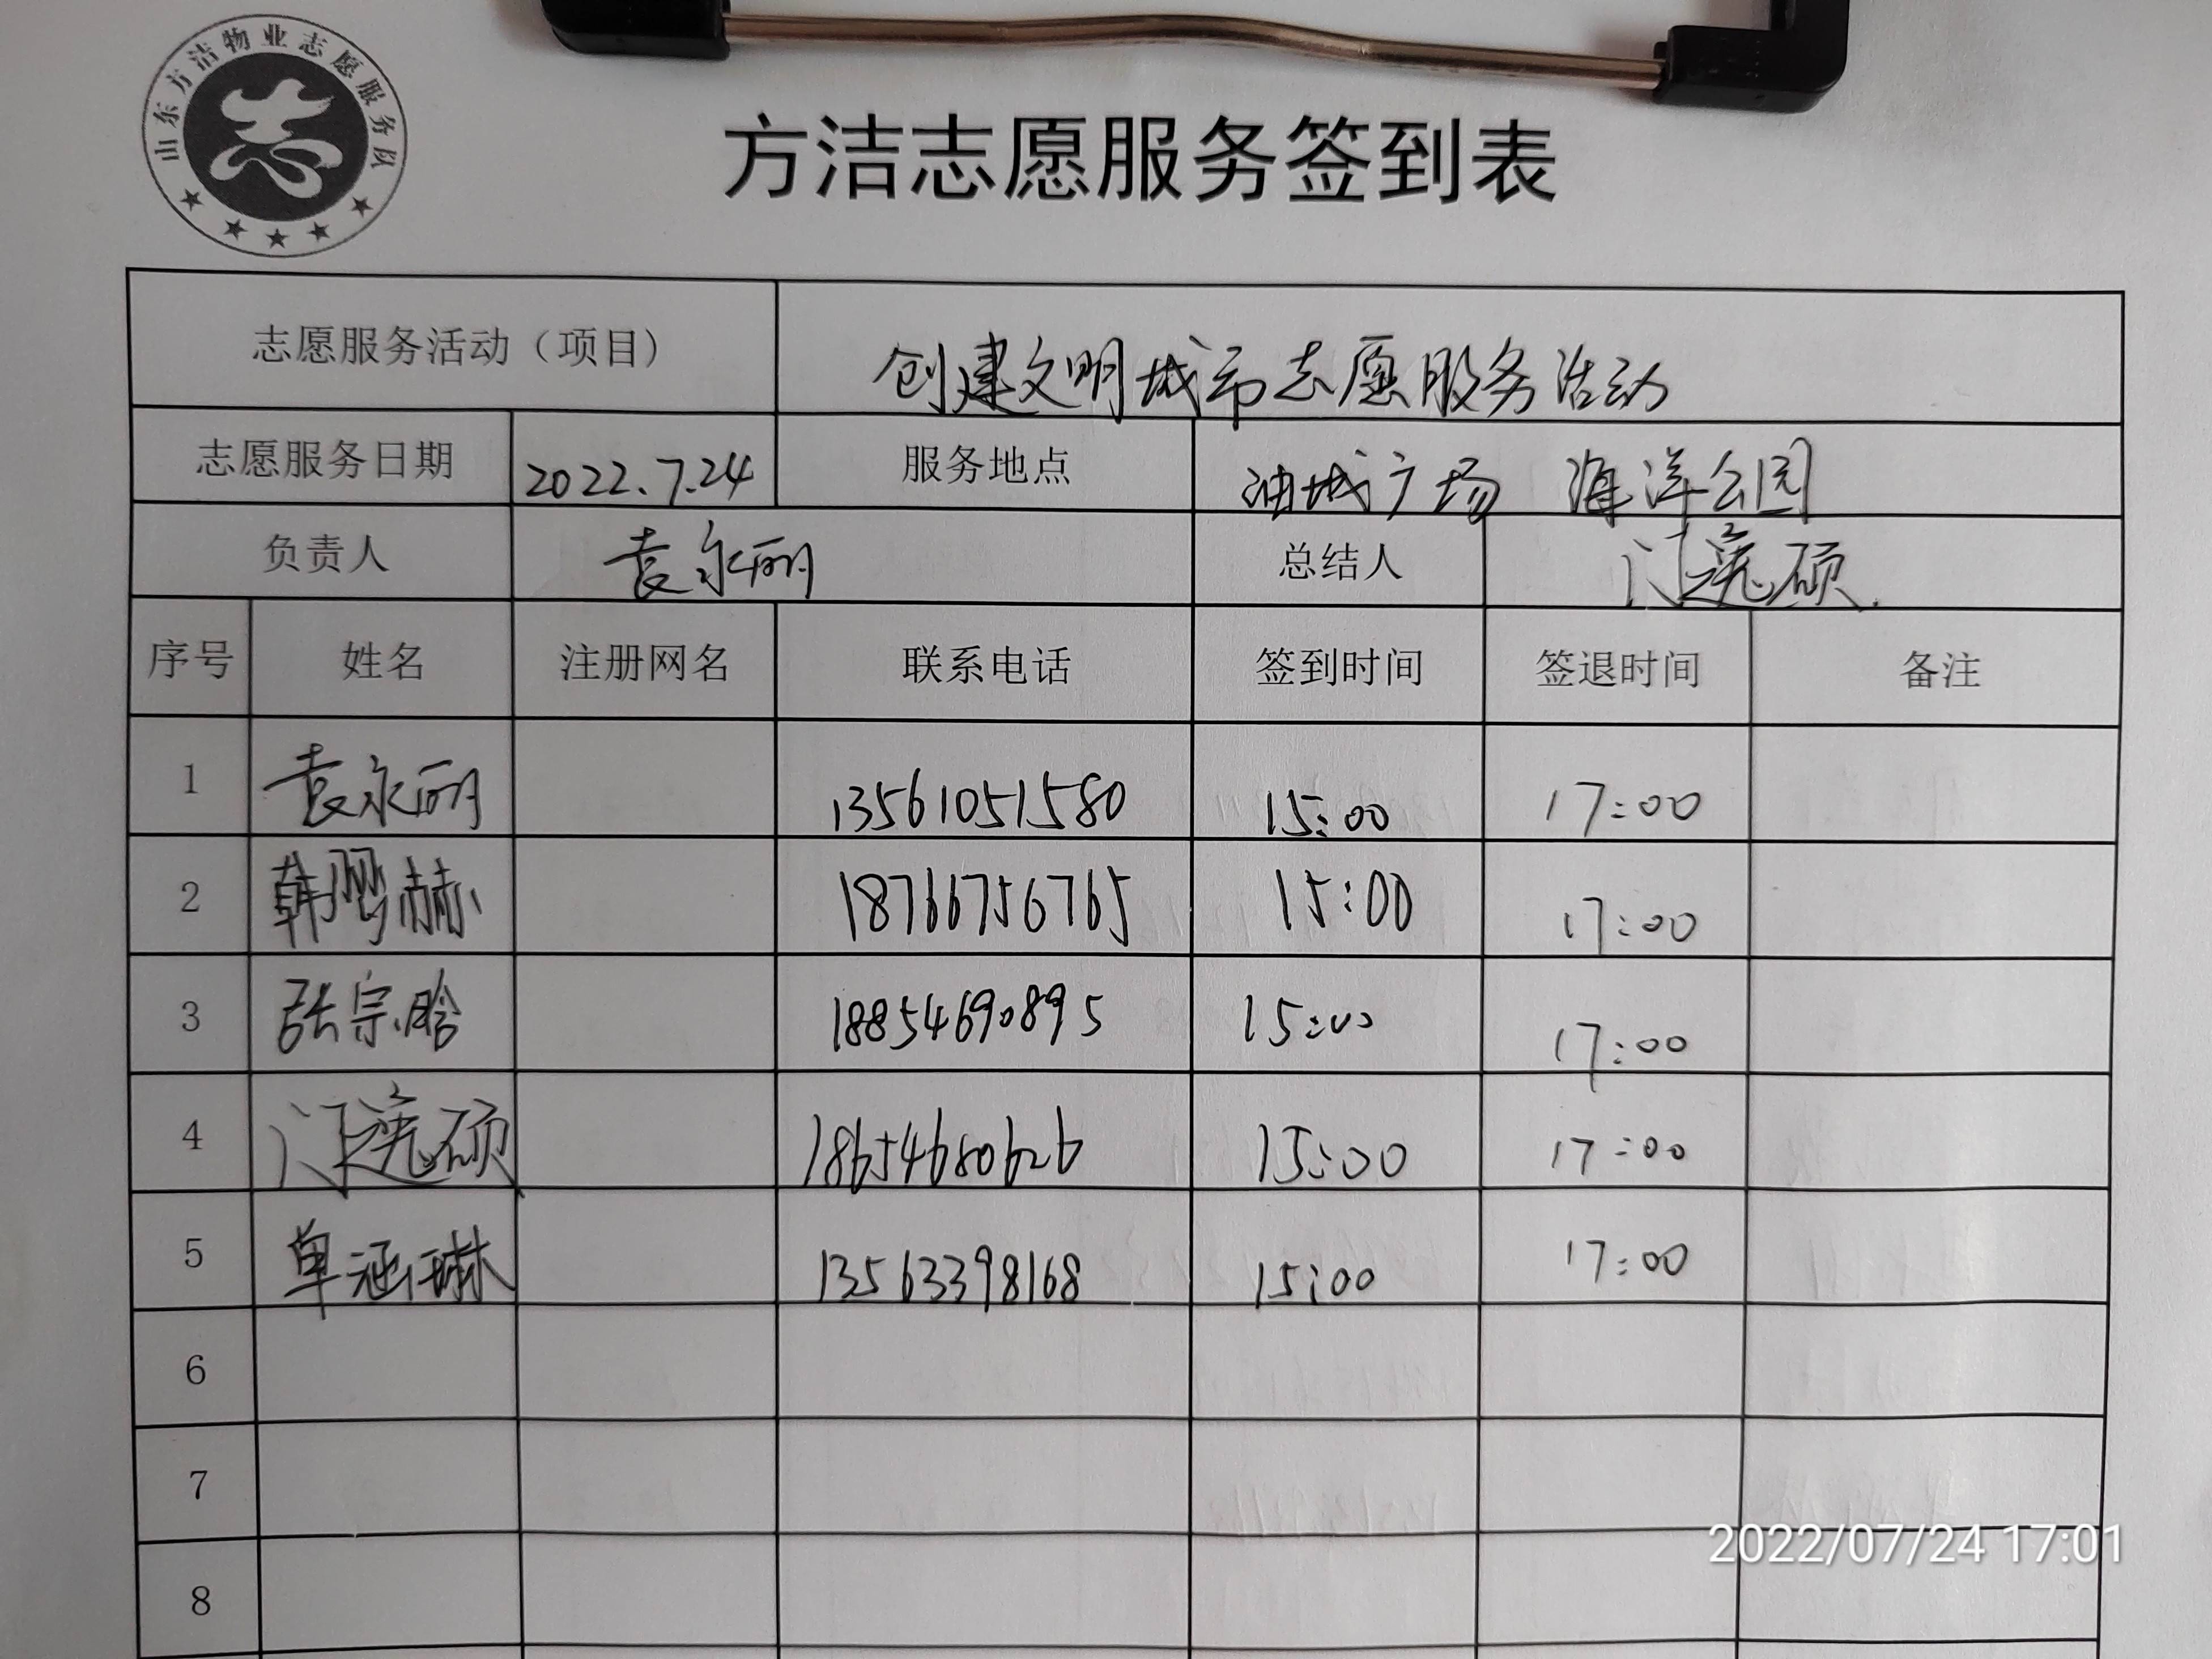 山东方洁物业志愿服务队
方洁志愿服务签到表
志愿服务活动（项目） 创建文明城市志愿服务活动
志愿服务日期 2022.7.24 服务地点 油城广场 海洋公园
负责人 袁永丽 总结人 门选硕
序号 姓名 注册网名 联系电话 签到时间 签退时间 备注
1 袁永丽 13561051580 15:00 17:00
2 韩鹏赫 18766756765 15:00 17:00
3 张宗晗 18854690895 15:00 17:00
4 门选硕 18654680626 15:00 17:00
5 单涵琳 13563398168 15:00 17:00
6
7
8
2022/07/24 17:01